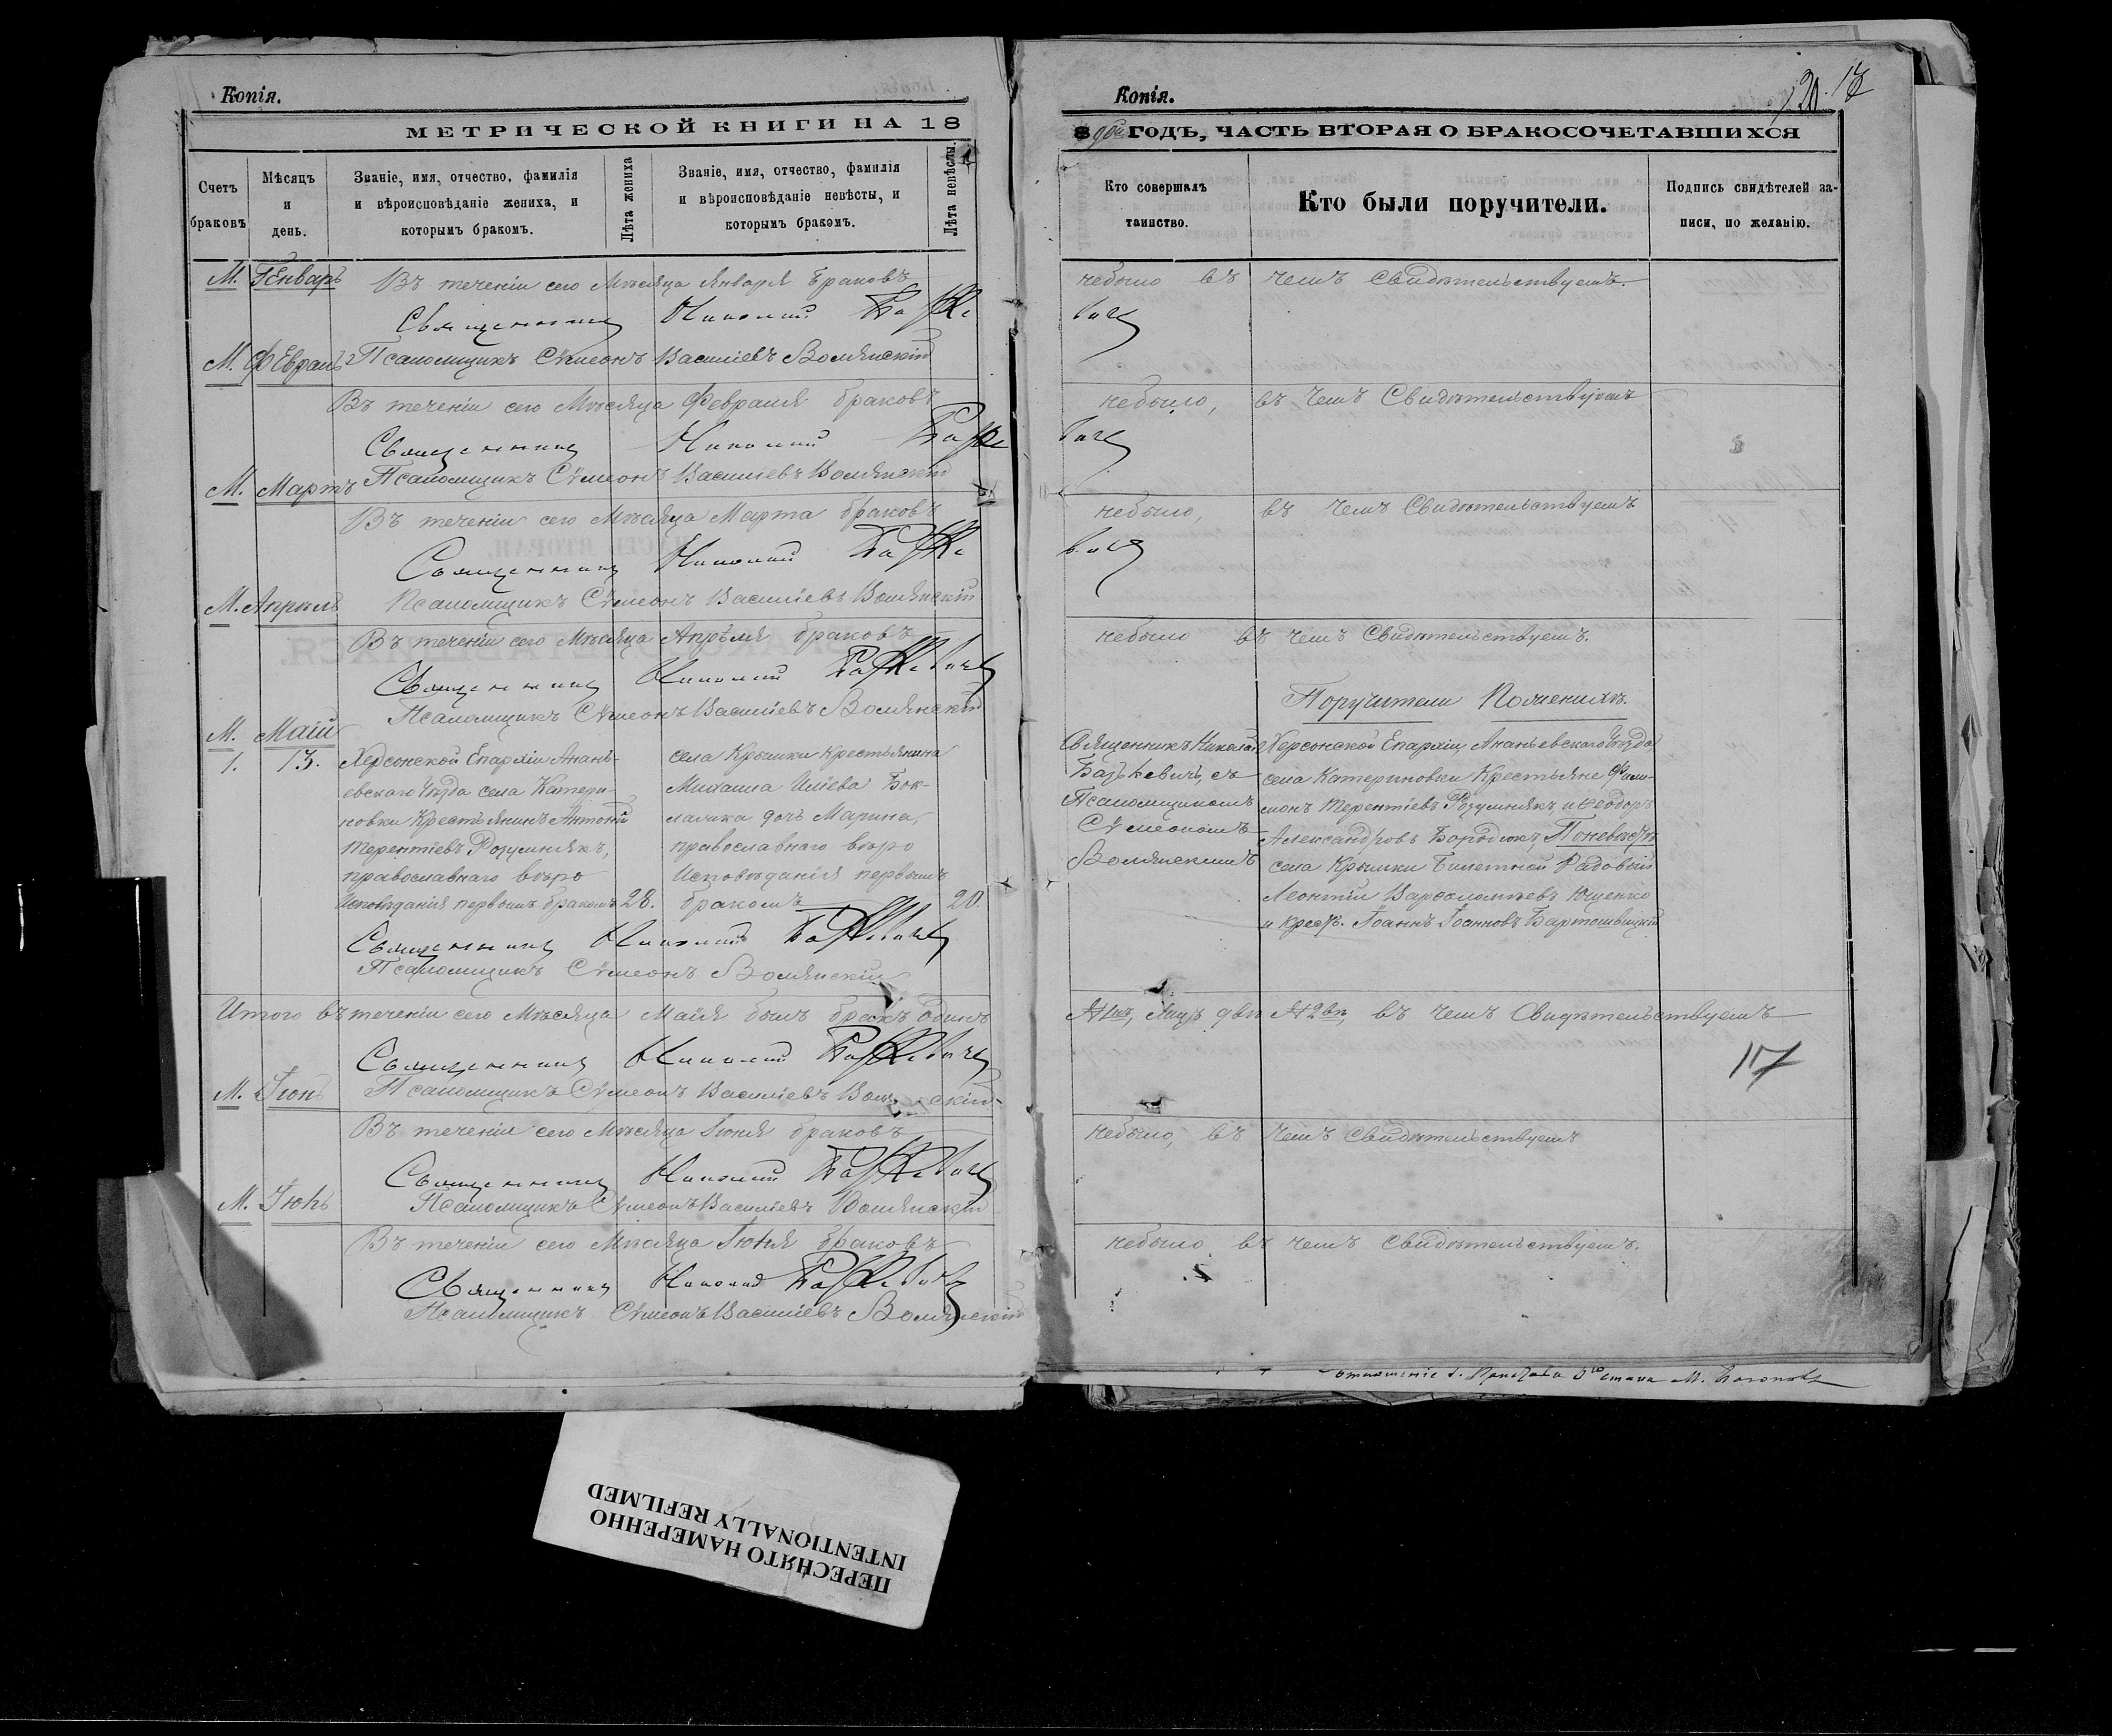 Копія.
МЕТРИЧЕСКОЙ КНИГИ НА 18
Счетъ браковъ
Мѣсяцъ и день.
Званіе, имя, отчество, фамилія и вѣроисповѣданіе жениха, и которымъ бракомъ.
Лѣта жениха
Званіе, имя, отчество, фамилія и вѣроисповѣданіе невѣсты, и которымъ бракомъ.
Лѣта невѣсты.
М. Генваръ
Въ теченіи сего Мѣсяца Января браковъ
Священникъ Николай
М. Февраль Псаломщикъ Сѵмеонъ Василіевъ Волянскій
Въ теченіи сего Мѣсяца Февраля браковъ
Священникъ Николай
М. Мартъ Псаломщикъ Сѵмеонъ Василіевъ Волянскій
Въ теченіи сего Мѣсяца Марта браковъ
Священникъ Николай
М. Апрѣль Псаломщикъ Сѵмеонъ Василіевъ Волянскій
Въ теченіи сего Мѣсяца Апрѣля браковъ
Священникъ Николай Базькевичъ
Псаломщикъ Сѵмеонъ Василіевъ Волянскій
М. Маій
1. 13. Херсонской Епархіи Анань-
евскаго Уѣзда села Катери-
новки Крестьянинъ Антоній
Терентіевъ Розумнякъ,
православнаго вѣро
Исповѣданія первымъ бракомъ 28.
села Крымки Крестьянина
Михаила Иліева Бок-
лалика дочь Марина,
православнаго вѣро
Исповѣданія первымъ
бракомъ 20.
Священникъ Николай Базькевичъ
Псаломщикъ Сѵмеонъ Волянскій
Итого въ теченіи сего Мѣсяца Маія былъ бракъ Одинъ
Священникъ Николай Базькевичъ
М. Іюнь Псаломщикъ Сѵмеонъ Василіевъ
Въ теченіи сего Мѣсяца Іюня браковъ
Священникъ Николай Базькевичъ
М. Псаломщикъ Сѵмеонъ Василіевъ Волянскій
Въ теченіи сего Мѣсяца браковъ
Священникъ Николай Базькевичъ
Псаломщикъ Сѵмеонъ Василіевъ Волянскій
Копія.
8 ГОДЪ, ЧАСТЬ ВТОРАЯ О БРАКОСОЧЕТАВШИХСЯ
Кто совершалъ таинство.
Кто были поручители.
Подпись свидѣтелей записи, по желанію.
небыло въ чемъ Свидѣтельствуемъ.
небыло, въ чемъ Свидѣтельствуемъ
небыло, въ чемъ Свидѣтельствуемъ
небыло въ чемъ Свидѣтельствуемъ.
Поручители По женихѣ.
Священникъ Николай
Базькевичъ, съ
Псаломщикомъ
Сѵмеономъ
Волянскимъ
Херсонской Епархіи Ананьевскаго Уѣзда
села Катериновки Крестьяне Фили-
монъ Терентіевъ Розумнякъ, и Ѳеодоръ
Александровъ Бородюкъ, По невѣстѣ
села Крымки Билетной Рядовый
Леонтій Варѳоломѣевъ Ющенко
и Крест. Іоаннъ Іоанновъ Бартошвицкій
№ 1нъ, Лицъ двѣ № 2вѣ, въ чемъ Свидѣтельствуемъ
117
небыло, въ чемъ Свидѣтельствуемъ
небыло въ чемъ Свидѣтельствуемъ.
ПЕРЕСНЯТО НАМЕРЕННО
INTENTIONALLY REFILMED